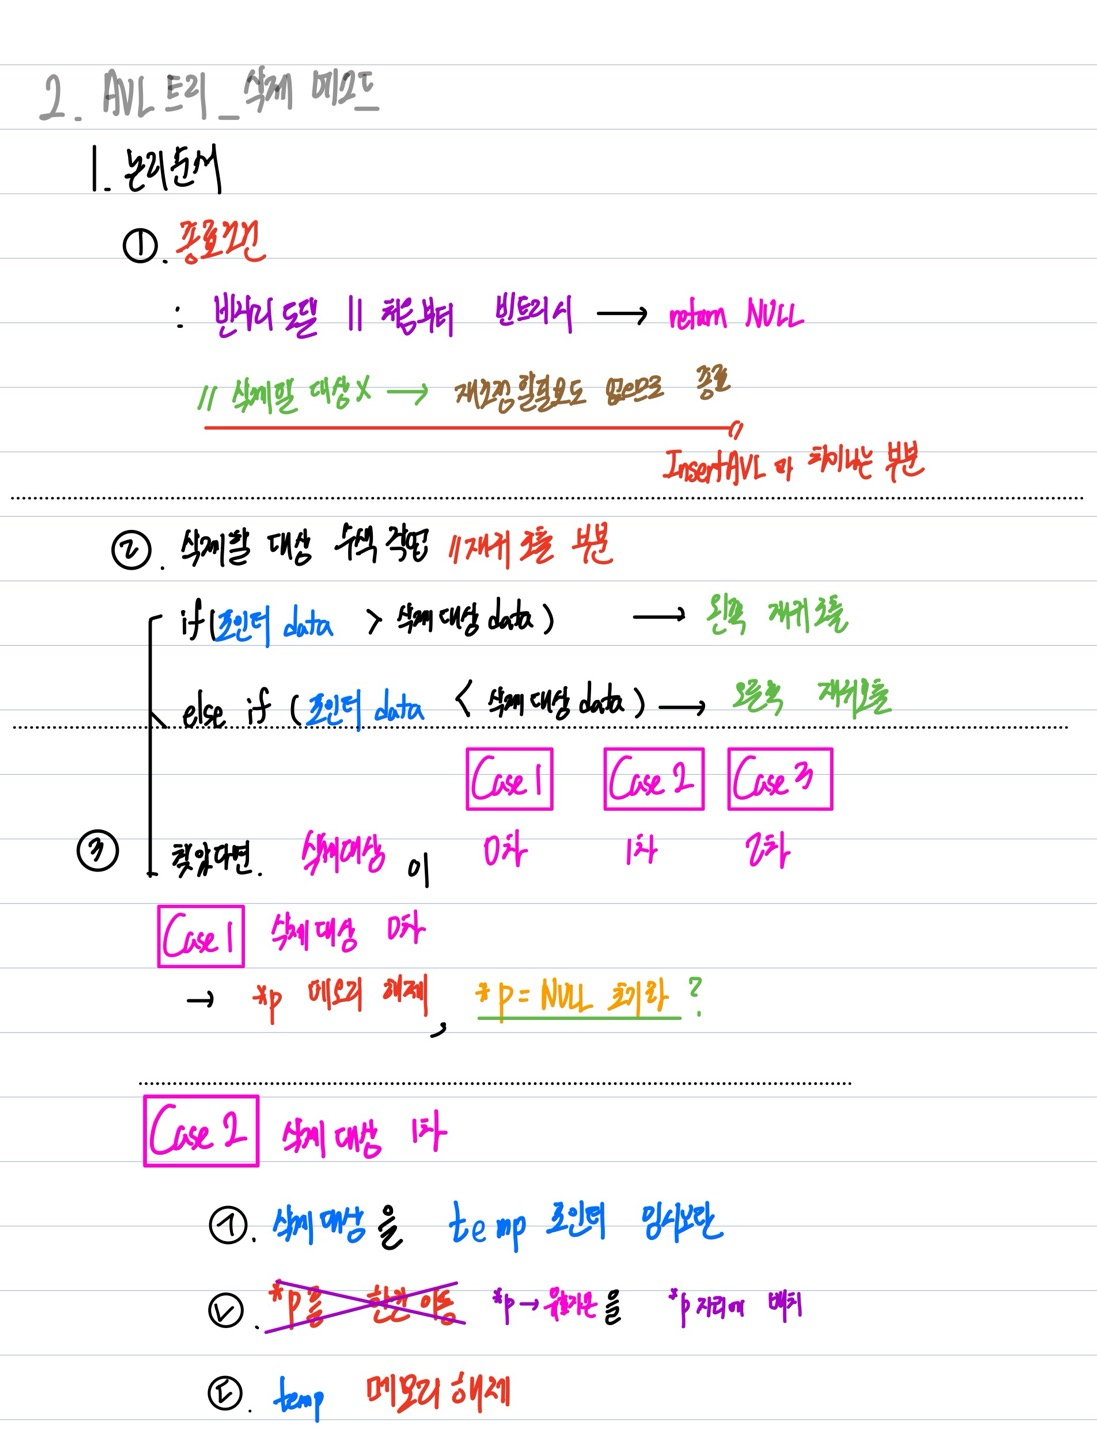 2. AVL 트리_삭제 메소드
1. 논리순서
①. 종료조건
: 빈자리 도달 || 처음부터 빈트리시 → return NULL
// 삭제할 대상X → 재조정할필요도 없으므로 종료
InsertAVL 과 차이나는 부분
②. 삭제할 대상 수색 작업 // 재귀 호출 부분
if(포인터 data > 삭제 대상 data) → 왼쪽 재귀호출
else if (포인터 data < 삭제 대상 data) → 오른쪽 재귀호출
Case 1 Case 2 Case 3
③ 찾았다면. 삭제대상이 0차 1차 2차
Case 1 삭제 대상 0차
→ *p 메모리 해제, *p = NULL 초기화 ?
Case 2 삭제 대상 1차
㉠. 삭제 대상을 temp 포인터 임시보관
㉡. *p를 한칸 이동 *p → 유일가은을 *p 자리에 배치
㉢. temp 메모리 해제